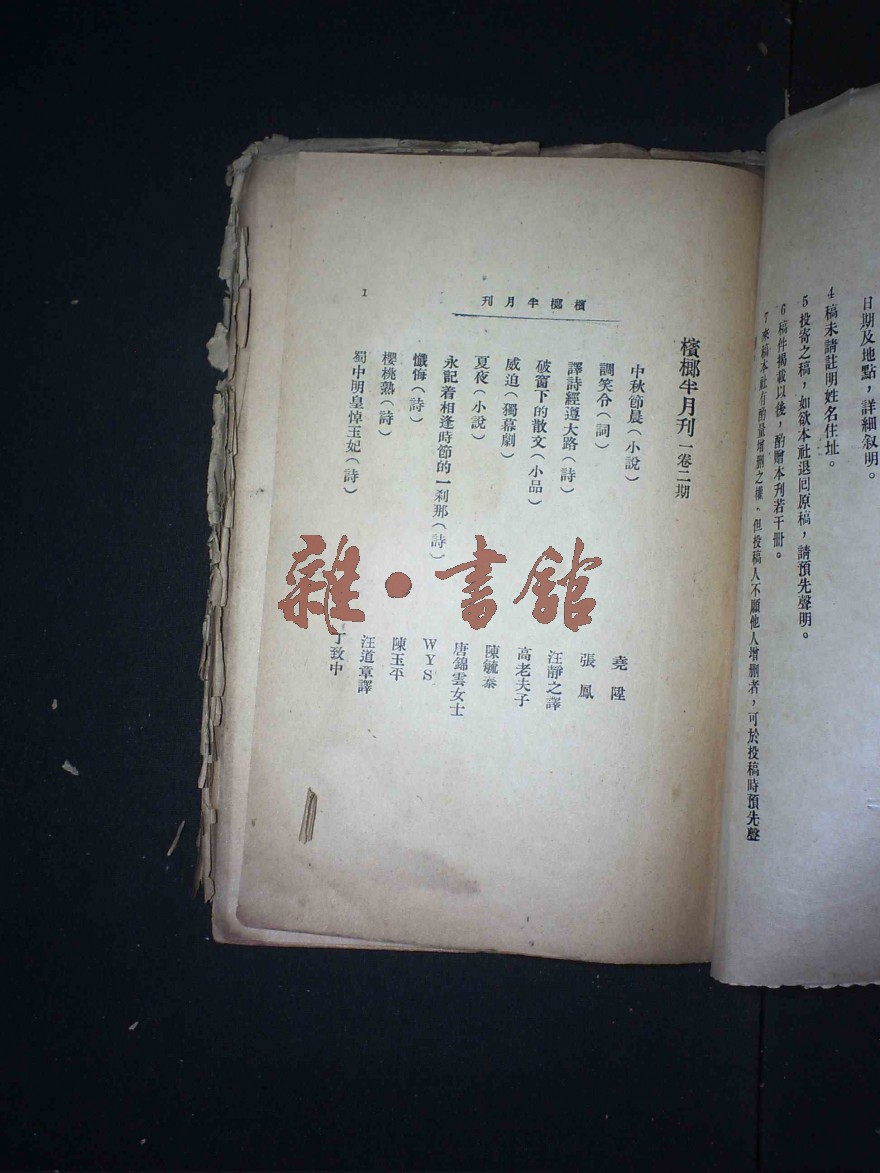 日期及地點，詳細叙明。
4 稿未請註明姓名住址。
5 投寄之稿，如欲本社退回原稿，請預先聲明。
6 稿件揭載以後，酌贈本刊若干冊。
7 來稿本社有酌量增删之權、但投稿人不願他人增删者，可於投稿時預先聲
檳榔半月刊
1
檳榔半月刊 一卷二期
中秋節晨（小說） 堯陞
調笑令（詞） 張鳳
譯詩經遵大路（詩） 汪靜之譯
破窗下的散文（小品） 高老夫子
威迫（獨幕劇） 陳毓泰
夏夜（小說） 唐錦雲女士
永記着相逢時節的一刹那（詩） WYS
懺悔（詩） 陳玉平
櫻桃熟（詩） 汪道章譯
蜀中明皇悼玉妃（詩） 丁致中
雜·書館